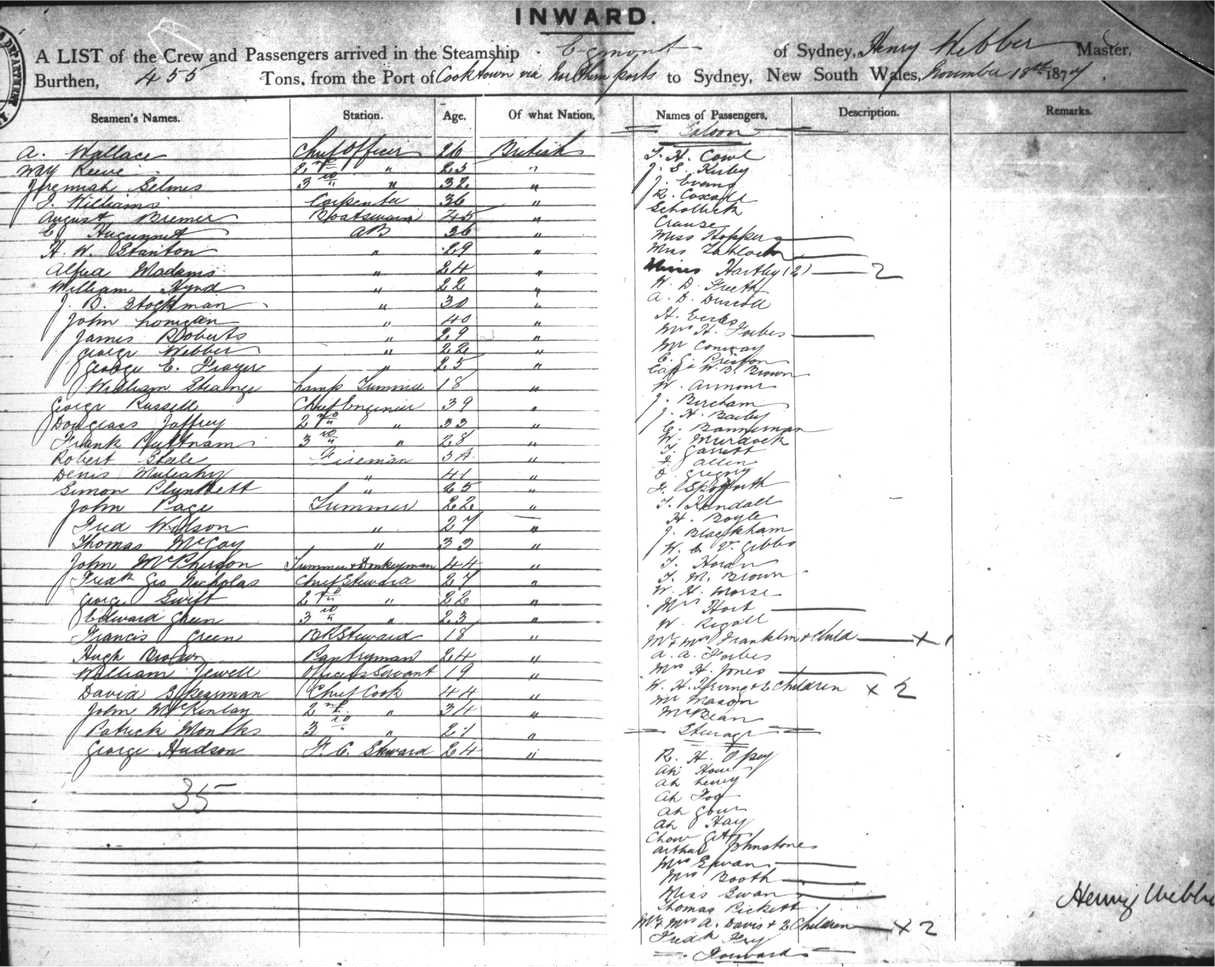 INWARD.
A LIST of the Crew and Passengers arrived in the Steamship Egmont of Sydney, Henry Webber Master,
Burthen, 455 Tons, from the Port of Cooktown via Northern ports to Sydney, New South Wales, November 18th 1874.
Seamen's Names. Station. Age. Of what Nation, Names of Passengers, Description. Remarks.
A. Wallace Chief Officer 26 British
Way Reeve 2nd " 23 "
Jeremiah Selmes 3rd " 32 "
J. Williams Carpenter 36 "
August Bremer Boatswain 45 "
E. AB 36 "
H. W. Stanton " 29 "
Alfred Madams " 24 "
William Hynd " 22 "
J. B. Stockman " 30 "
John Lonigan " 40 "
James Roberts " 29 "
George Webber " 22 "
George E. Frazer " 25 "
William Strange Lamp Trimmer 18 "
George Russell Chief Engineer 39 "
Douglass Jaffrey 2nd " 33 "
Frank Puttnam 3rd " 28 "
Robert Steele Fireman 38 "
Denis Muleahy " 41 "
Simon Plunkett " 65 "
John Page Trimmer 22 "
Fred Wilson " 27 "
Thomas McCoy " 33 "
John McPherson Trimmer & Donkeyman 44 "
Fredk Geo Nicholas Chief Steward 27 "
George Swift 2nd " 22 "
Edward Green 3rd " 23 "
Francis Green BR Steward 18 "
Hugh Brown Pantryman 24 "
William Jewell Officers Servant 19 "
David Spearman Chief Cook 44 "
John McKinlay 2nd " 34 "
Patrick Months 3rd " 21 "
George Hudson F. C. Steward 24 "
35
Saloon
T. H. Cowl
J. E. Kirby
J. Evans
R. Coxall
Crause
Miss Hopper
Miss
Misses Hartley (2) 2
W. D. Freeth
A. D. Driscoll
H. Eccles
Mrs H. Forbes
Mr Conway
E. G. Preston
Capt W. B. Brown
W. Armour
J. Bircham
J. H. Bailey
E. Bannerman
W. Murdock
T. Garrett
J. Allen
D. Gregory
J. Spofforth
T. Kendall
H. Boyle
J. Blackham
W. & V. Gibbs
T. Horan
T. M. Brown
W. H. Morse
Mrs Hort
W. Rigall
Mr & Mrs Franklin & Child x 1
A. A. Forbes
Mrs H. Jones
W. H. Irving & 2 Children x 2
Mr Mason
McBean
Steerage
R. H. Opey
Ah How
Ah Henry
Ah Foo
Ah Gow
Ah Hay
Chow
Arthur Johnstone
Mrs
Mrs Booth
Miss Swan
Thomas Pickett
Mr & Mrs A. Davis & 2 Children x 2
Fredk Fry
Forward
Henry Webber